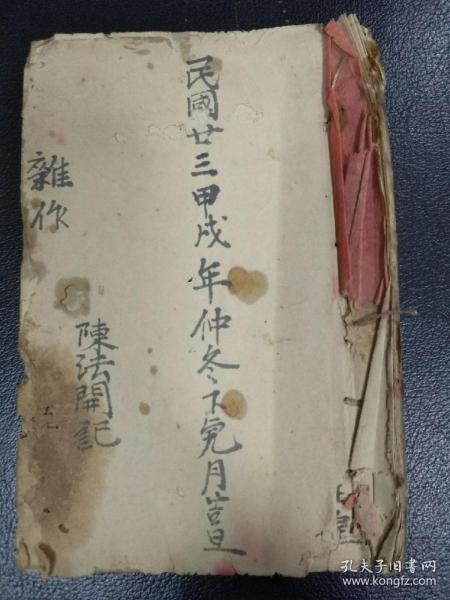 民國廿三甲戌年仲冬下完月吉旦
陳法開記
雜作
孔夫子旧书网
www.kongfz.com